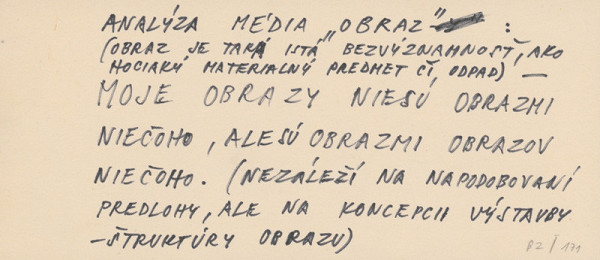 ANALÝZA MÉDIA „OBRAZ" :
(OBRAZ JE TAKÁ ISTÁ BEZVÝZNAMNOSŤ, AKO
HOCIAKÝ MATERIALNÝ PREDMET ČI, ODPAD) —
MOJE OBRAZY NIESÚ OBRAZMI
NIEČOHO, ALE SÚ OBRAZMI OBRAZOV
NIEČOHO. (NEZÁLEŽÍ NA NAPODOBOVANÍ
PREDLOHY, ALE NA KONCEPCII VÝSTAVBY
–ŠTRUKTÚRY OBRAZU)